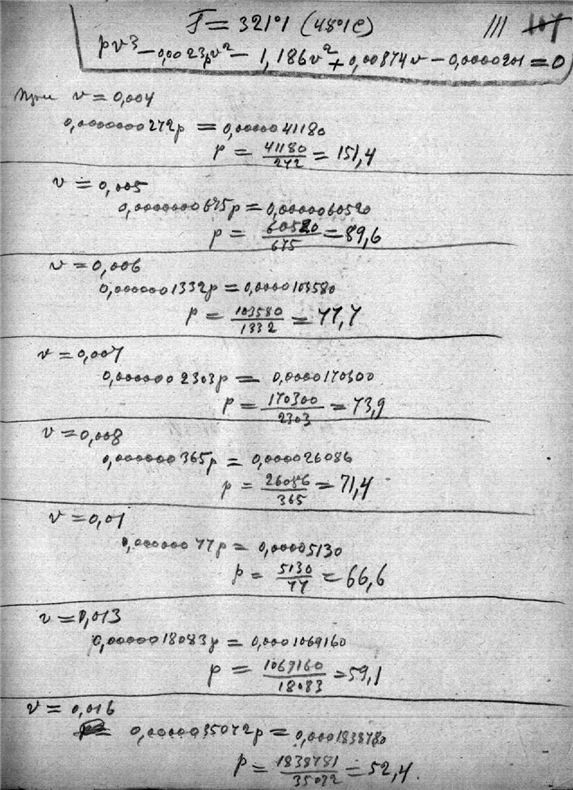 T = 321°1 (48°1C) III 107
pv³ - 0,0023pv² - 1,186v² + 0,00874v - 0,0000201 = 0
При v = 0,004
0,0000000272p = 0,0000041180
p = 41180/272 = 151,4
v = 0,005
0,0000000675p = 0,0000060520
p = 60520/675 = 89,6
v = 0,006
0,0000001332p = 0,0000103580
p = 103580/1332 = 77,7
v = 0,007
0,0000002303p = 0,0000170300
p = 170300/2303 = 73,9
v = 0,008
0,000000365p = 0,000026086
p = 26086/365 = 71,4
v = 0,01
0,00000077p = 0,00005130
p = 5130/77 = 66,6
v = 0,013
0,0000018083p = 0,0001069160
p = 1069160/18083 = 59,1
v = 0,016
0,0000035072p = 0,0001838780
p = 1838781/35072 = 52,4.